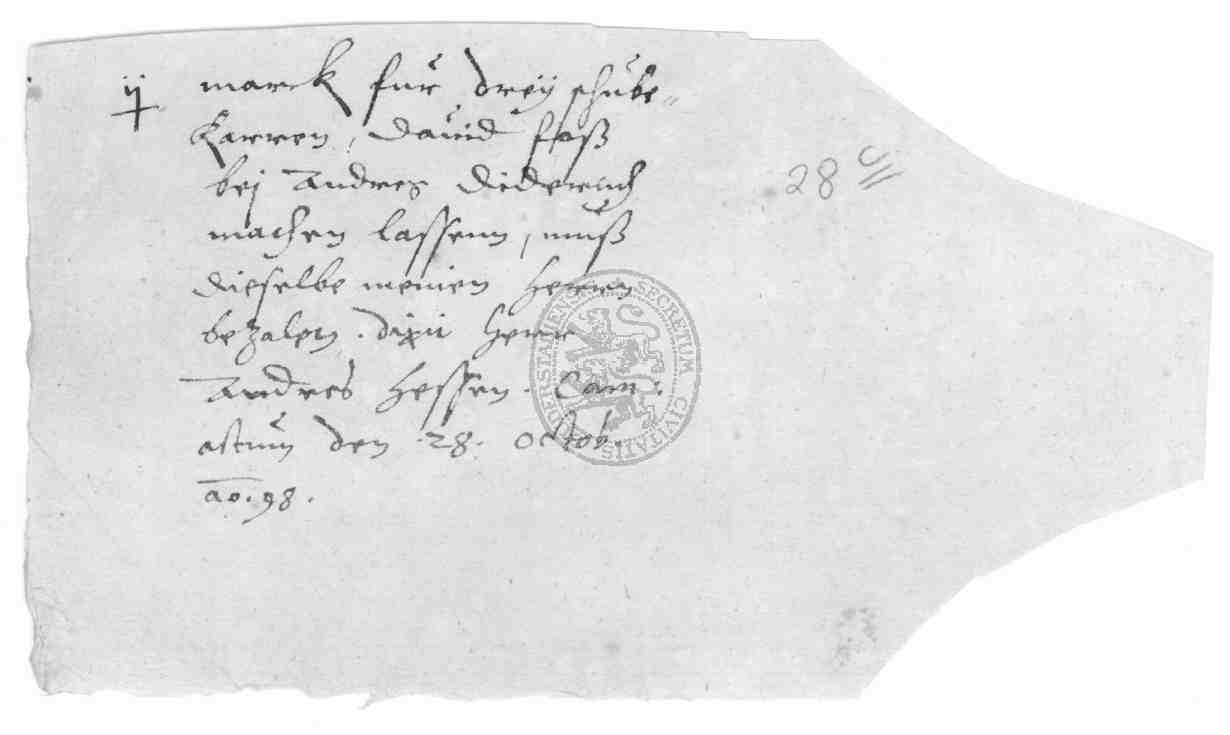 ij marck fur dreÿ schube„
Karren, Dauid faß
bej Andres Diderich
machen lassenn, muß
dieselbe meinen Herren
bezalen. dixit Herr
Andres Hessen. Cam:
actum den .28. octob.
ao. 98.
28
SECRETUM CIVITATIS